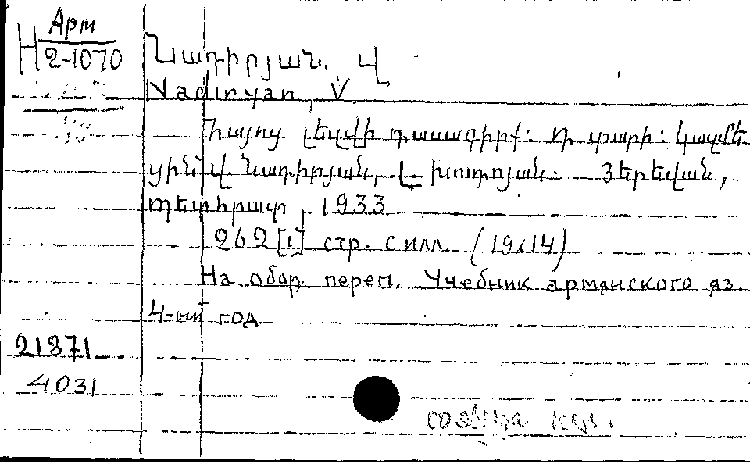 Арм
Н 2-1070
Նադիրյան. Վ
Nadiryan, V
Հայոց լեզվի դասագիրք: Դ տարի: Կազմե-
ցին Վ. Նադիրյան, Լ. Խոտոյան. — Յերեվան,
Պետհրատ, 1933
262 [1] стр. с илл. (19x14)
На обор. переп. Учебник армянского яз.
4-ый год
21871
4031